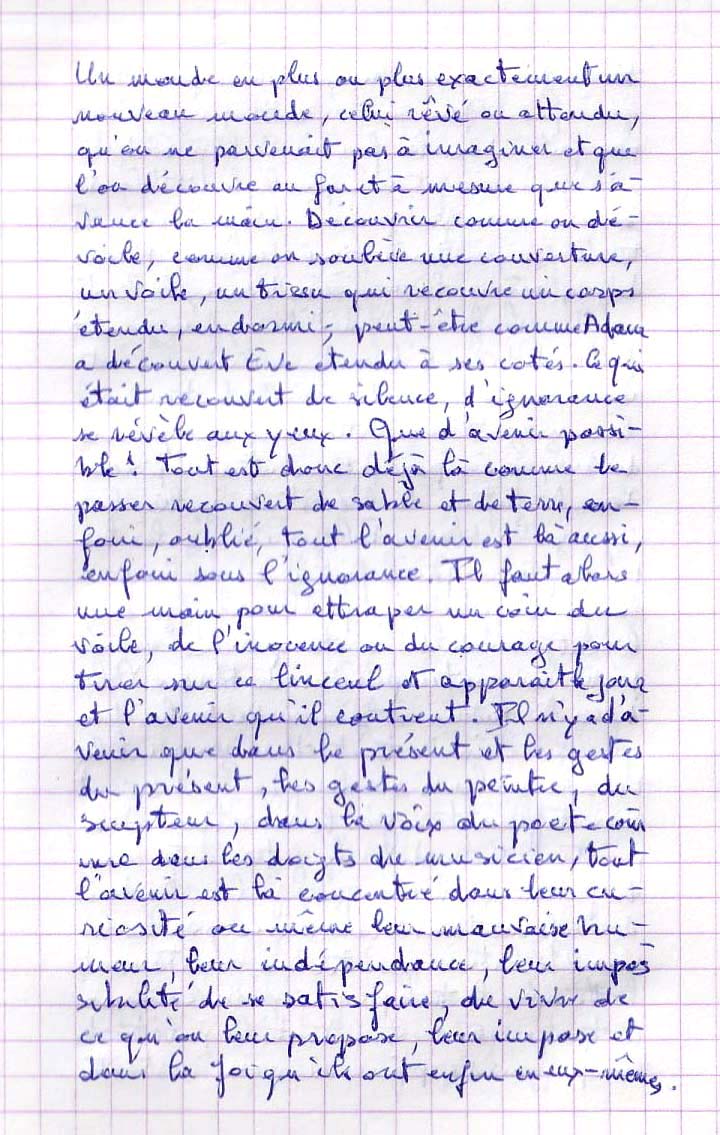 Un monde en plus ou plus exactement un
nouveau monde, celui rêvé ou attendu,
qu'on ne parvenait pas à imaginer et que
l'on découvre au fur et à mesure que s'a-
vance la main. Découvrir comme on dé-
voile, comme on soulève une couverture,
un voile, un tissu qui recouvre un corps
étendu, endormi; peut-être comme Adam
a découvert Eve etendu à ses cotés. Ce qui
était recouvert de silence, d'ignorance
se révèle aux yeux. Que d'avenir possi-
ble! Tout est donc déjà là comme le
passer recouvert de sable et de terre, en-
foui, oublié, tout l'avenir est là aussi,
enfoui sous l'ignorance. Il faut alors
une main pour attraper un coin du
voile, de l'inocence ou du courage pour
tirer sur ce linceul et apparait le jour
et l'avenir qu'il contient. Il n'y a d'a-
venir que dans le présent et les gestes
du présent, les gestes du peintre, du
sculpteur, dans la voix du poete com
me dans les doigts du musicien, tout
l'avenir est là concentré dans leur cu-
riosité ou même leur mauvaise hu-
meur, leur indépendance, leur impos
sibilité de se satisfaire, de vivre de
ce qu'on leur propose, leur impose et
dans la foi qu'ils ont enfin en eux-mêmes.